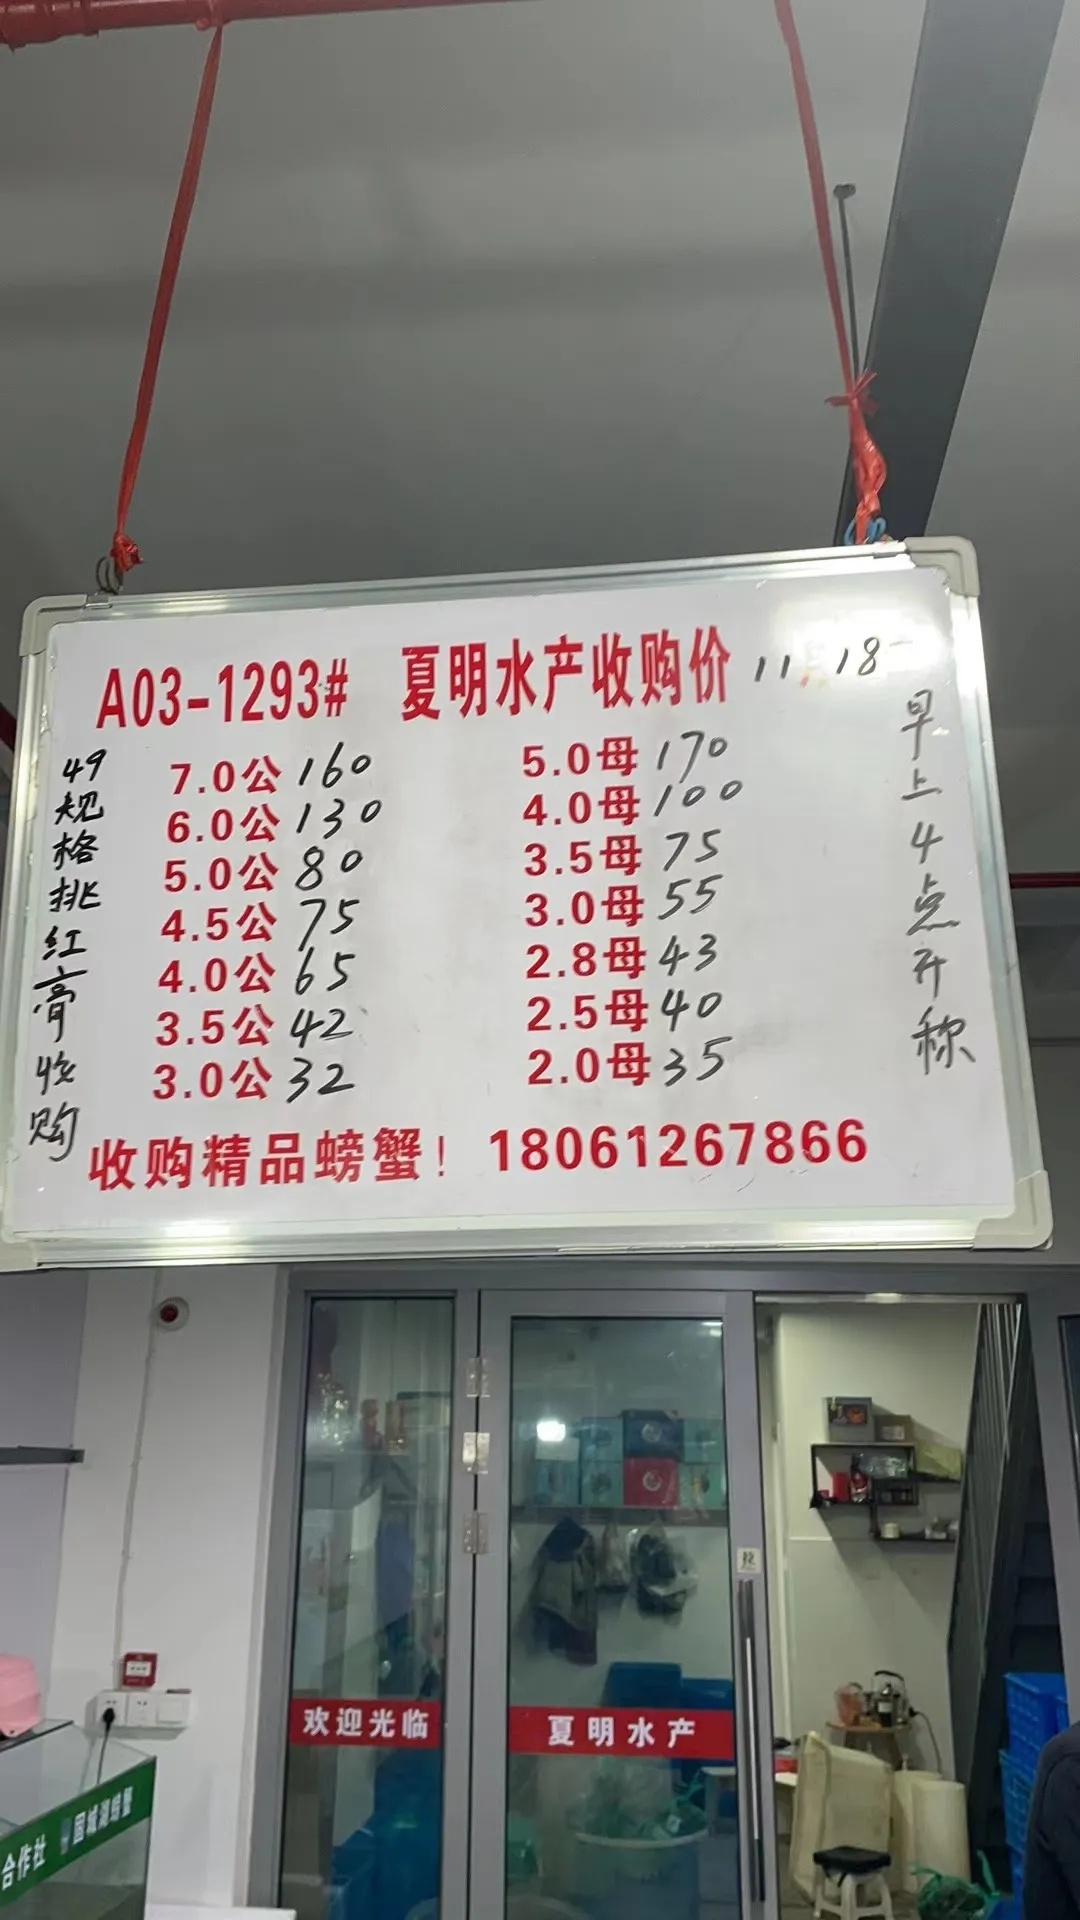 A03-1293# 夏明水产收购价 11月18
49规格挑红膏收购
7.0公 160
6.0公 130
5.0公 80
4.5公 75
4.0公 65
3.5公 42
3.0公 32
5.0母 170
4.0母 100
3.5母 75
3.0母 55
2.8母 43
2.5母 40
2.0母 35
早上4点开称
收购精品螃蟹! 18061267866
欢迎光临
夏明水产
固城湖螃蟹
合作社